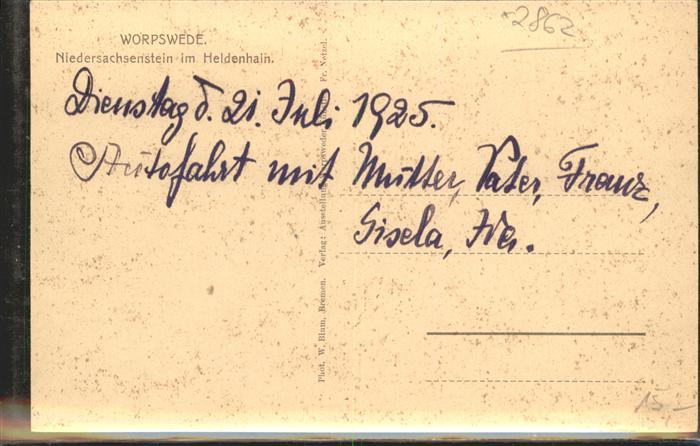 2862
WORPSWEDE.
Niedersachsenstein im Heldenhain.
Dienstag d. 21. Juli 1925.
Autofahrt mit Mutter, Vater, Franz,
Gisela,
Phot. W. Blum, Bremen. Verlag: Ausstellung Fr. Netzel.
15.-